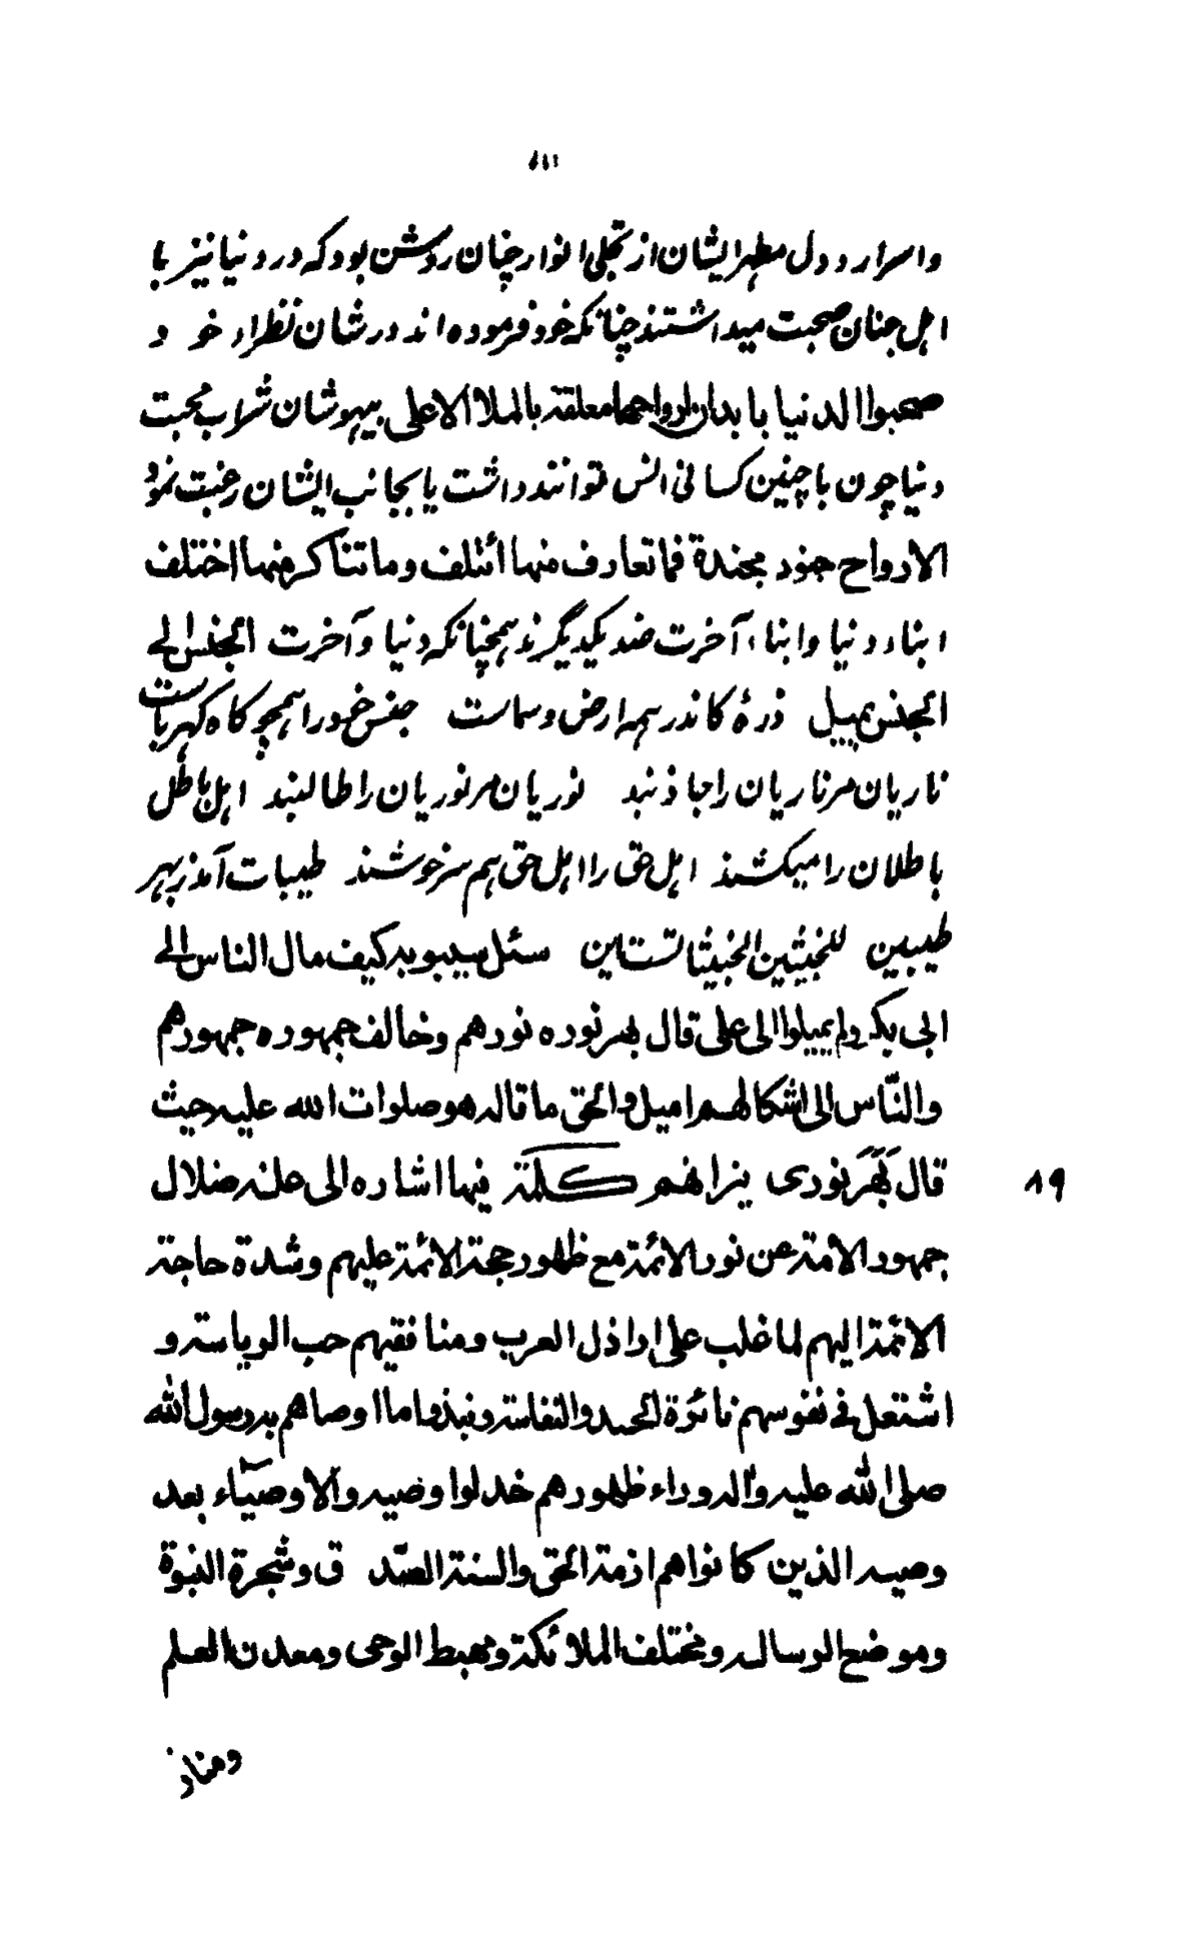 ۱۱۱
و اسرار و دل مطهر ایشان از تجلی انوار چنان روشن بود که در دنیا نیز با
اهل جنان صحبت میداشتند چنانکه خود فرموده اند در شان نظراء خود
صحبوا الدنیا بابدان ارواحها معلقة بالملا الاعلی بیهوشان شراب محبت
دنیا چون با چنین کسانی انس توانند داشت یا بجانب ایشان رغبت نمود
الارواح جنود مجندة فما تعارف منها ائتلف و ما تناکر منها اختلف
ابناء دنیا و ابناء آخرت ضد یکدیگرند همچنانکه دنیا و آخرت الجنس الی
الجنس یمیل ذرهٔ کاندر همه ارض و سماست جنس خود را همچو کاه کهرباست
ناریان مر ناریان را جاذبند نوریان مر نوریان را طالبند اهل باطل
باطلان را میکشند اهل حق را اهل حق هم سرخوشند طیبات آمد ز بهر
طیبین للخبیثین الخبیثاتست این سئل سیبویه کیف مال الناس الی
ابی بکر ولم یمیلوا الی علی قال بهر نوره نورهم و خالف جمهوره جمهورهم
والنّاس الی اشکالهم امیل والحق ما قاله هو صلوات الله علیه حیث
قال بَهَرَ نوری نیرانهم کلمة فیها اشاره الی علة ضلال
۱۹
جمهور الامة عن نور الائمة مع ظهور حجة الائمة علیهم و شدة حاجة
الائمة الیهم لما غلب علی اراذل العرب و منافقیهم حب الریاسة و
اشتعل فی نفوسهم نائرة الحسد والنفاسة و نبذوا ما اوصاهم به رسول الله
صلی الله علیه و اله وراء ظهورهم خذلوا وصیه والاوصیآء بعد
وصیه الذین کانوا هم ازمة الحق والسنة الصّدق و شجرة النبوة
و موضع الرسالة و مختلف الملائکة و مهبط الوحی و معدن العلم
و منار